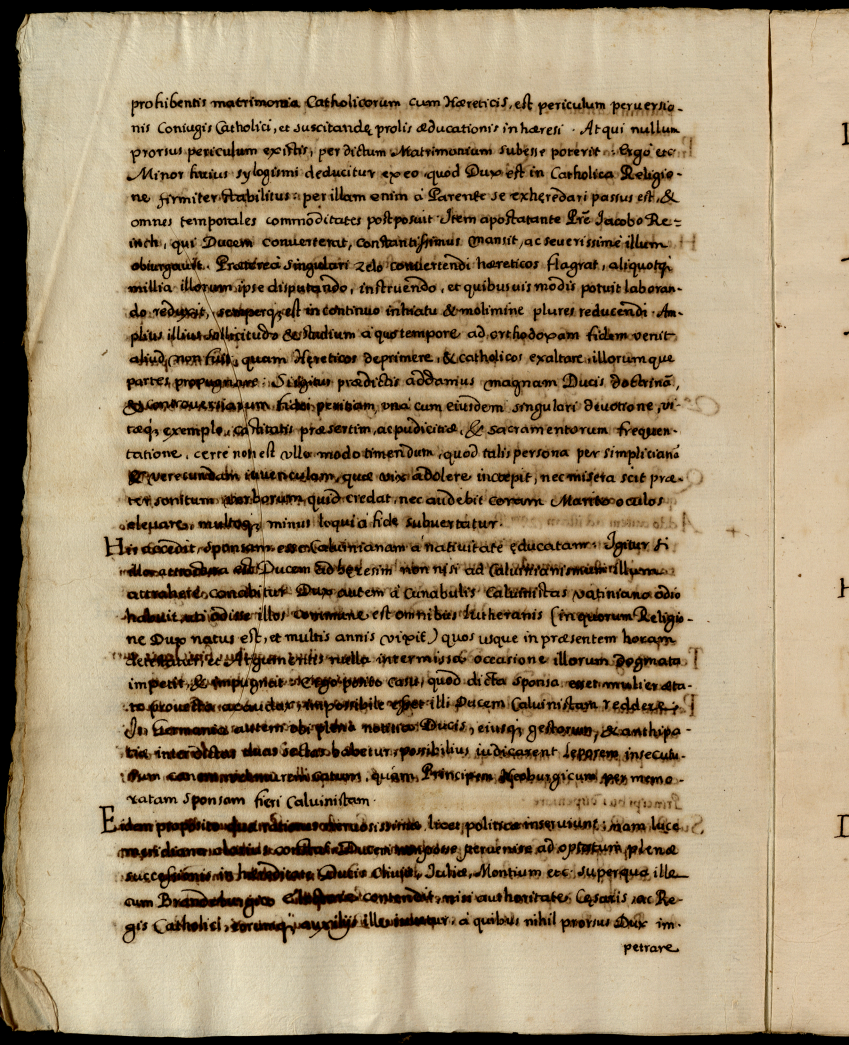 prohibentis matrimonia Catholicorum cum Hæreticis, est periculum perversio-
nis Coniugis Catholici, et suscitandę prolis æducationis in hæresi. Atqui nullum
prorsus periculum existis, per dictum Matrimonium subesse poterit. Ergo etc
Minor huius sylogismi deducitur ex eo quod Dux est in Catholica Religio-
ne firmiter stabilitus: per illam enim á Parente se exheredari passus est, &
omnes temporales commoditates postposuit. Item apostatante Pre Jacobo Re=
inch, qui Ducem converterat, constantissimus mansit, ac severissimé illum
obiurgavit. Prætereá singulari zelo convertendi hæreticos flagrat, aliquotq
millia illorum ipse disputando, instruendo, et quibusvis modis potuit laboran-
do reduxit, semperq est in continuo intuitu & molimine plures reducendi. Am-
plius illius sollicitudo & studium á quo tempore ad orthodoxam fidem venit
aliud non fuit, quam Hęreticos deprimere, & catholicos exaltare, illorumque
partes propugnare. Si igitur prædictis addamus magnam Ducis doctrinã,
& controversiarum fidei peritiam una cum eiusdem singulari devotione, vi-
tæq exemplo, castitatis præsertim, ac pudicitiæ, & sacramentorum frequen-
tatione, certe non est ullo modo timendum, quod talis persona per simplicianã
& verecundam iuvenculam, quæ vix adolere incæpit, nec misera scit præ-
ter sonitum verborum quid credat, nec audebit coram Marito oculos
elevare, multoq minus loqui á fide subvertatur.
His accedit, sponsam esse Calvinianam á nativitate educatam. Igitur si
Ducem ad heresim non nisi ad Calvinianismum illum
attrahere conabitur. Dux autem á Cunabulis Calvinistas vatiniano odio
habuit, uti odisse illos commune est omnibus Lutheranis (in quorum Religio-
ne Dux natus est, et multis annis vixit) quos usque in præsentem horam
Argumentis nulla intermissa occasione illorum dogmata
impetit, & impugnat. Ergo posito casu, quod dicta sponsa esset mulier æta-
te provecta impossibile esset illi Ducem Calvinistam reddere.
In Germania autem ubi plena notitia Ducis, eiusq gestorum, & antipa-
tia inter dictas duas sectas habetur, possibilius iudicarent leporem insecutu-
rum canem quam Principem Neoburgicum per memo-
ratam sponsam fieri Calvinistam.
Eidem proposito licet politicæ inserviunt; nam luce
meridiana Ducem pervenire ad optatum plenæ
successionis in Ducatu Cliviæ, Juliæ, Montium etc. superque ille
cum Brandeburgico contendit, nisi authoritates Cęsaris, ac Re-
gis Catholici, eorumq auxilijs á quibus nihil prorsus Dux im-
petrare